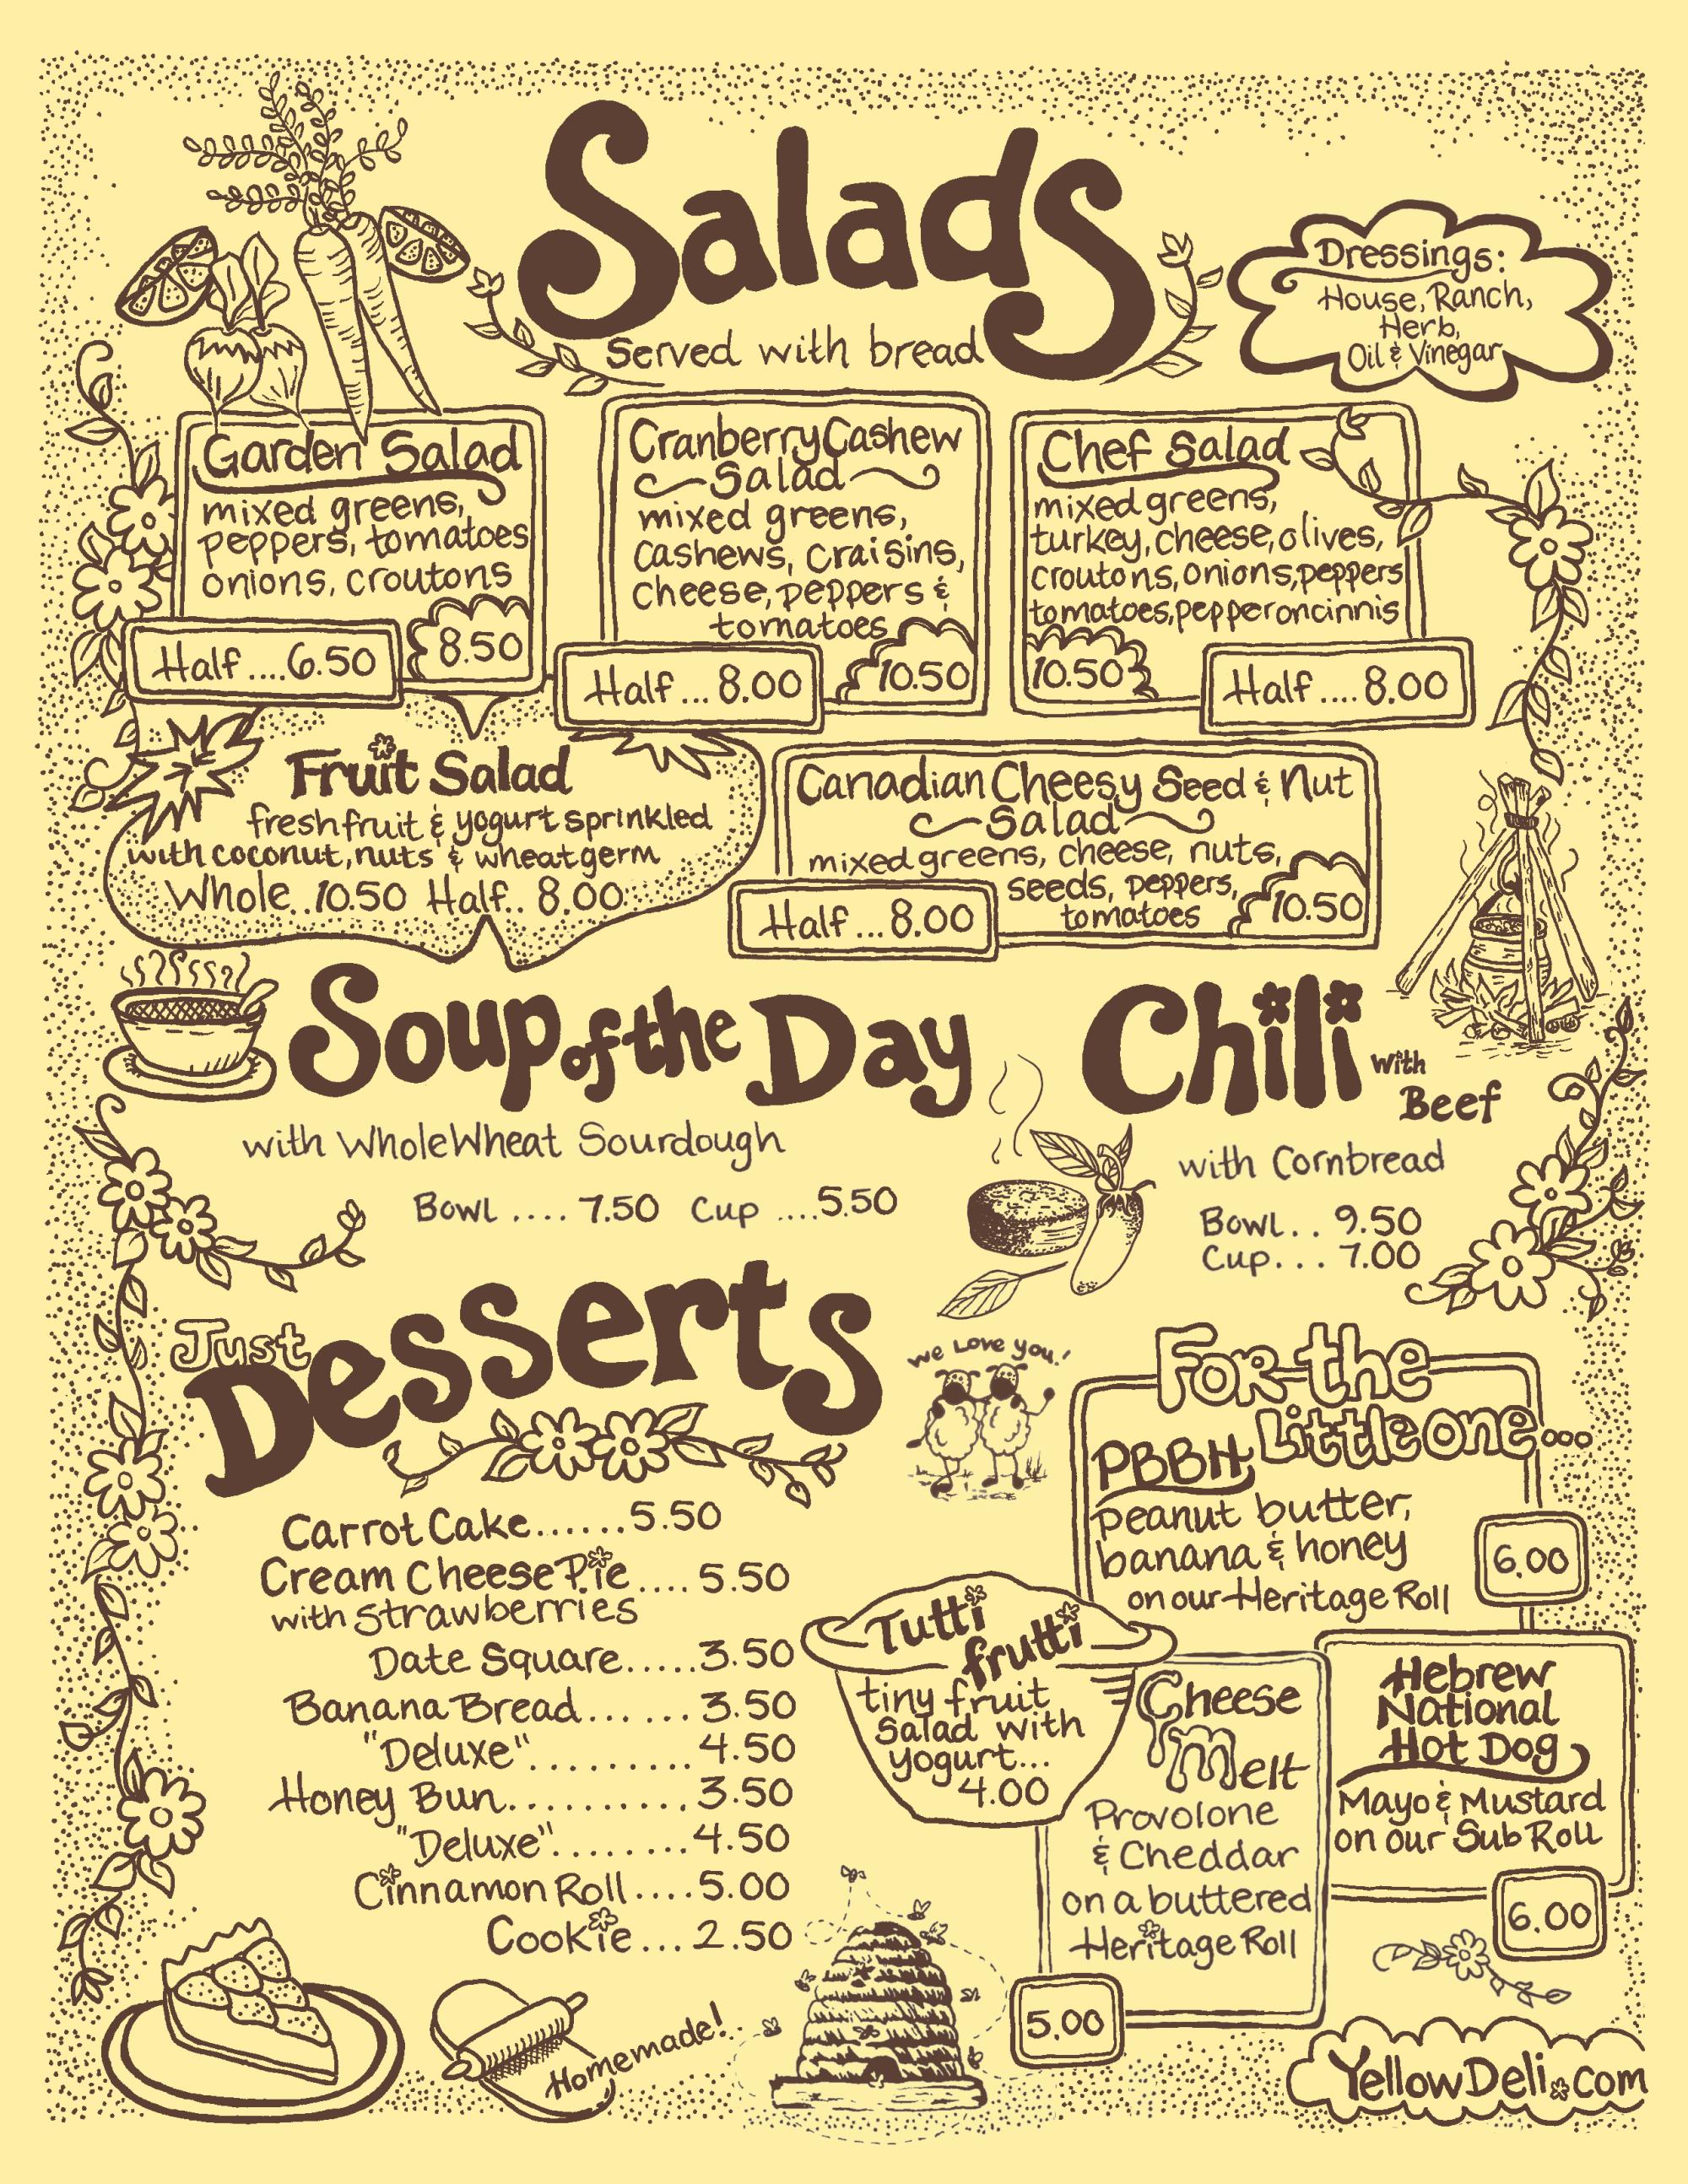 Salads
Served with bread
Dressings:
House, Ranch,
Herb,
Oil & Vinegar
Garden Salad
mixed greens,
peppers, tomatoes
onions, croutons
Half....6.50
8.50
Cranberry Cashew
Salad
mixed greens,
cashews, craisins,
cheese, peppers &
tomatoes
Half... 8.00
10.50
Chef Salad
mixed greens,
turkey, cheese, olives,
croutons, onions, peppers
tomatoes, pepperoncinnis
10.50
Half.... 8.00
Fruit Salad
fresh fruit & yogurt sprinkled
with coconut, nuts & wheat germ
Whole..10.50 Half.. 8.00
Canadian Cheesy Seed & Nut
Salad
mixed greens, cheese, nuts,
seeds, peppers,
tomatoes
Half... 8.00
10.50
Soup of the Day
with Whole Wheat Sourdough
Bowl .... 7.50 Cup ....5.50
Chili with
Beef
with Cornbread
Bowl.. 9.50
Cup... 7.00
Just
Desserts
Carrot Cake......5.50
Cream Cheese Pie....5.50
with strawberries
Date Square.....3.50
Banana Bread......3.50
"Deluxe".........4.50
Honey Bun..........3.50
"Deluxe"........4.50
Cinnamon Roll....5.00
Cookie...2.50
Homemade!
We Love you!
For the
Little one...
PBBH
peanut butter,
banana & honey
on our Heritage Roll
6.00
Tutti
frutti
tiny fruit
salad with
yogurt...
4.00
Cheese
Melt
Provolone
& Cheddar
on a buttered
Heritage Roll
5.00
Hebrew
National
Hot Dog
Mayo & Mustard
on our Sub Roll
6.00
YellowDeli.com